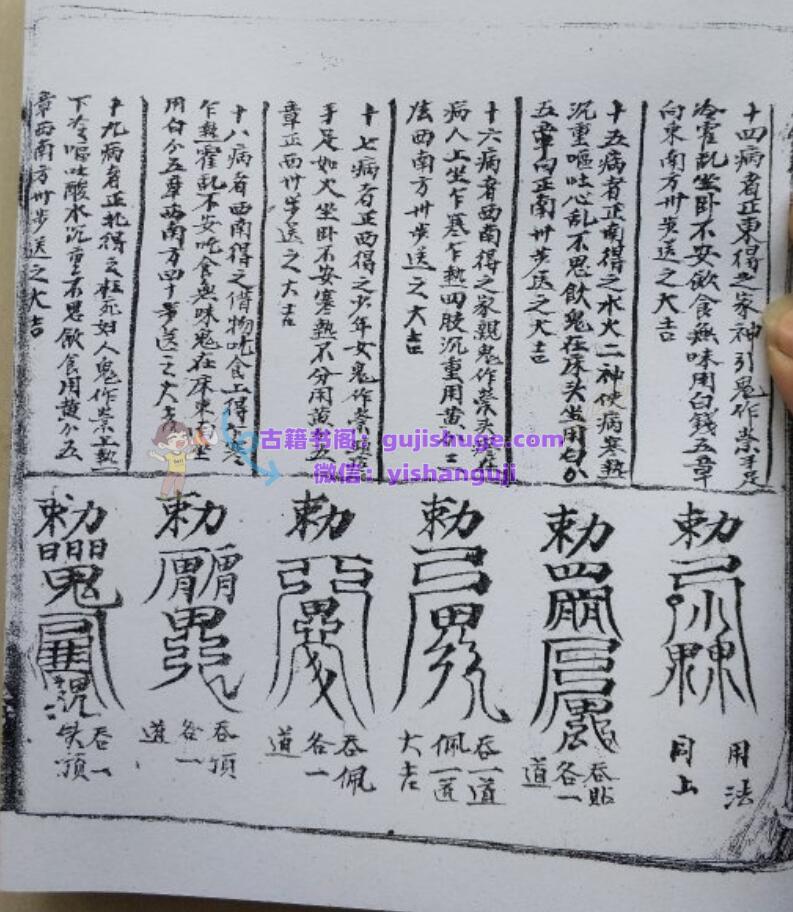 十四病者正東得之家神引鬼作祟手足
冷霍乱坐卧不安飲食無味用白錢五章
向東南方卅步送之大吉
十五病者正南得之水火二神使病寒熱
沉重嘔吐心乱不思飲鬼在床头坐用白分
五章向正南卅步送之大吉
十六病者西南得之家親鬼作祟头疼
病人上坐乍寒乍熱四肢沉重用黄分
法西南方卅步送之大吉
十七病者正西得之少年女鬼作祟
手足如火坐卧不安寒熱不分用黄分五
章正西卅步送之大吉
十八病者西南得之借物吃食上得乍寒
乍熱霍乱不安吃食無味鬼在床東南坐
用白分五章西南方四十步送之大吉
十九病者正北得之枉死婦人鬼作祟上熱
下冷嘔吐酸水沉重不思飲食用黄分五
章西南方卅步送之大吉
古籍书阁：gujishuge.com
微信：yishanguji
勅
用法
同上
勅
吞貼
各一
道
勅
吞一道
佩一道
大吉
勅
吞佩
各一
道
勅
吞頂
各一
道
勅
吞一
头頂